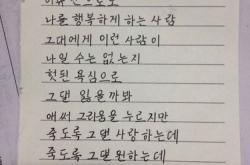 나를 행복하게 하는 사람
그대에게 이런 사람이
나일 수는 없는지
헛된 욕심으로
그댈 잃을까봐
애써 그리움을 누르지만
죽도록 그댈 사랑하는데
죽도록 그댈 원하는데